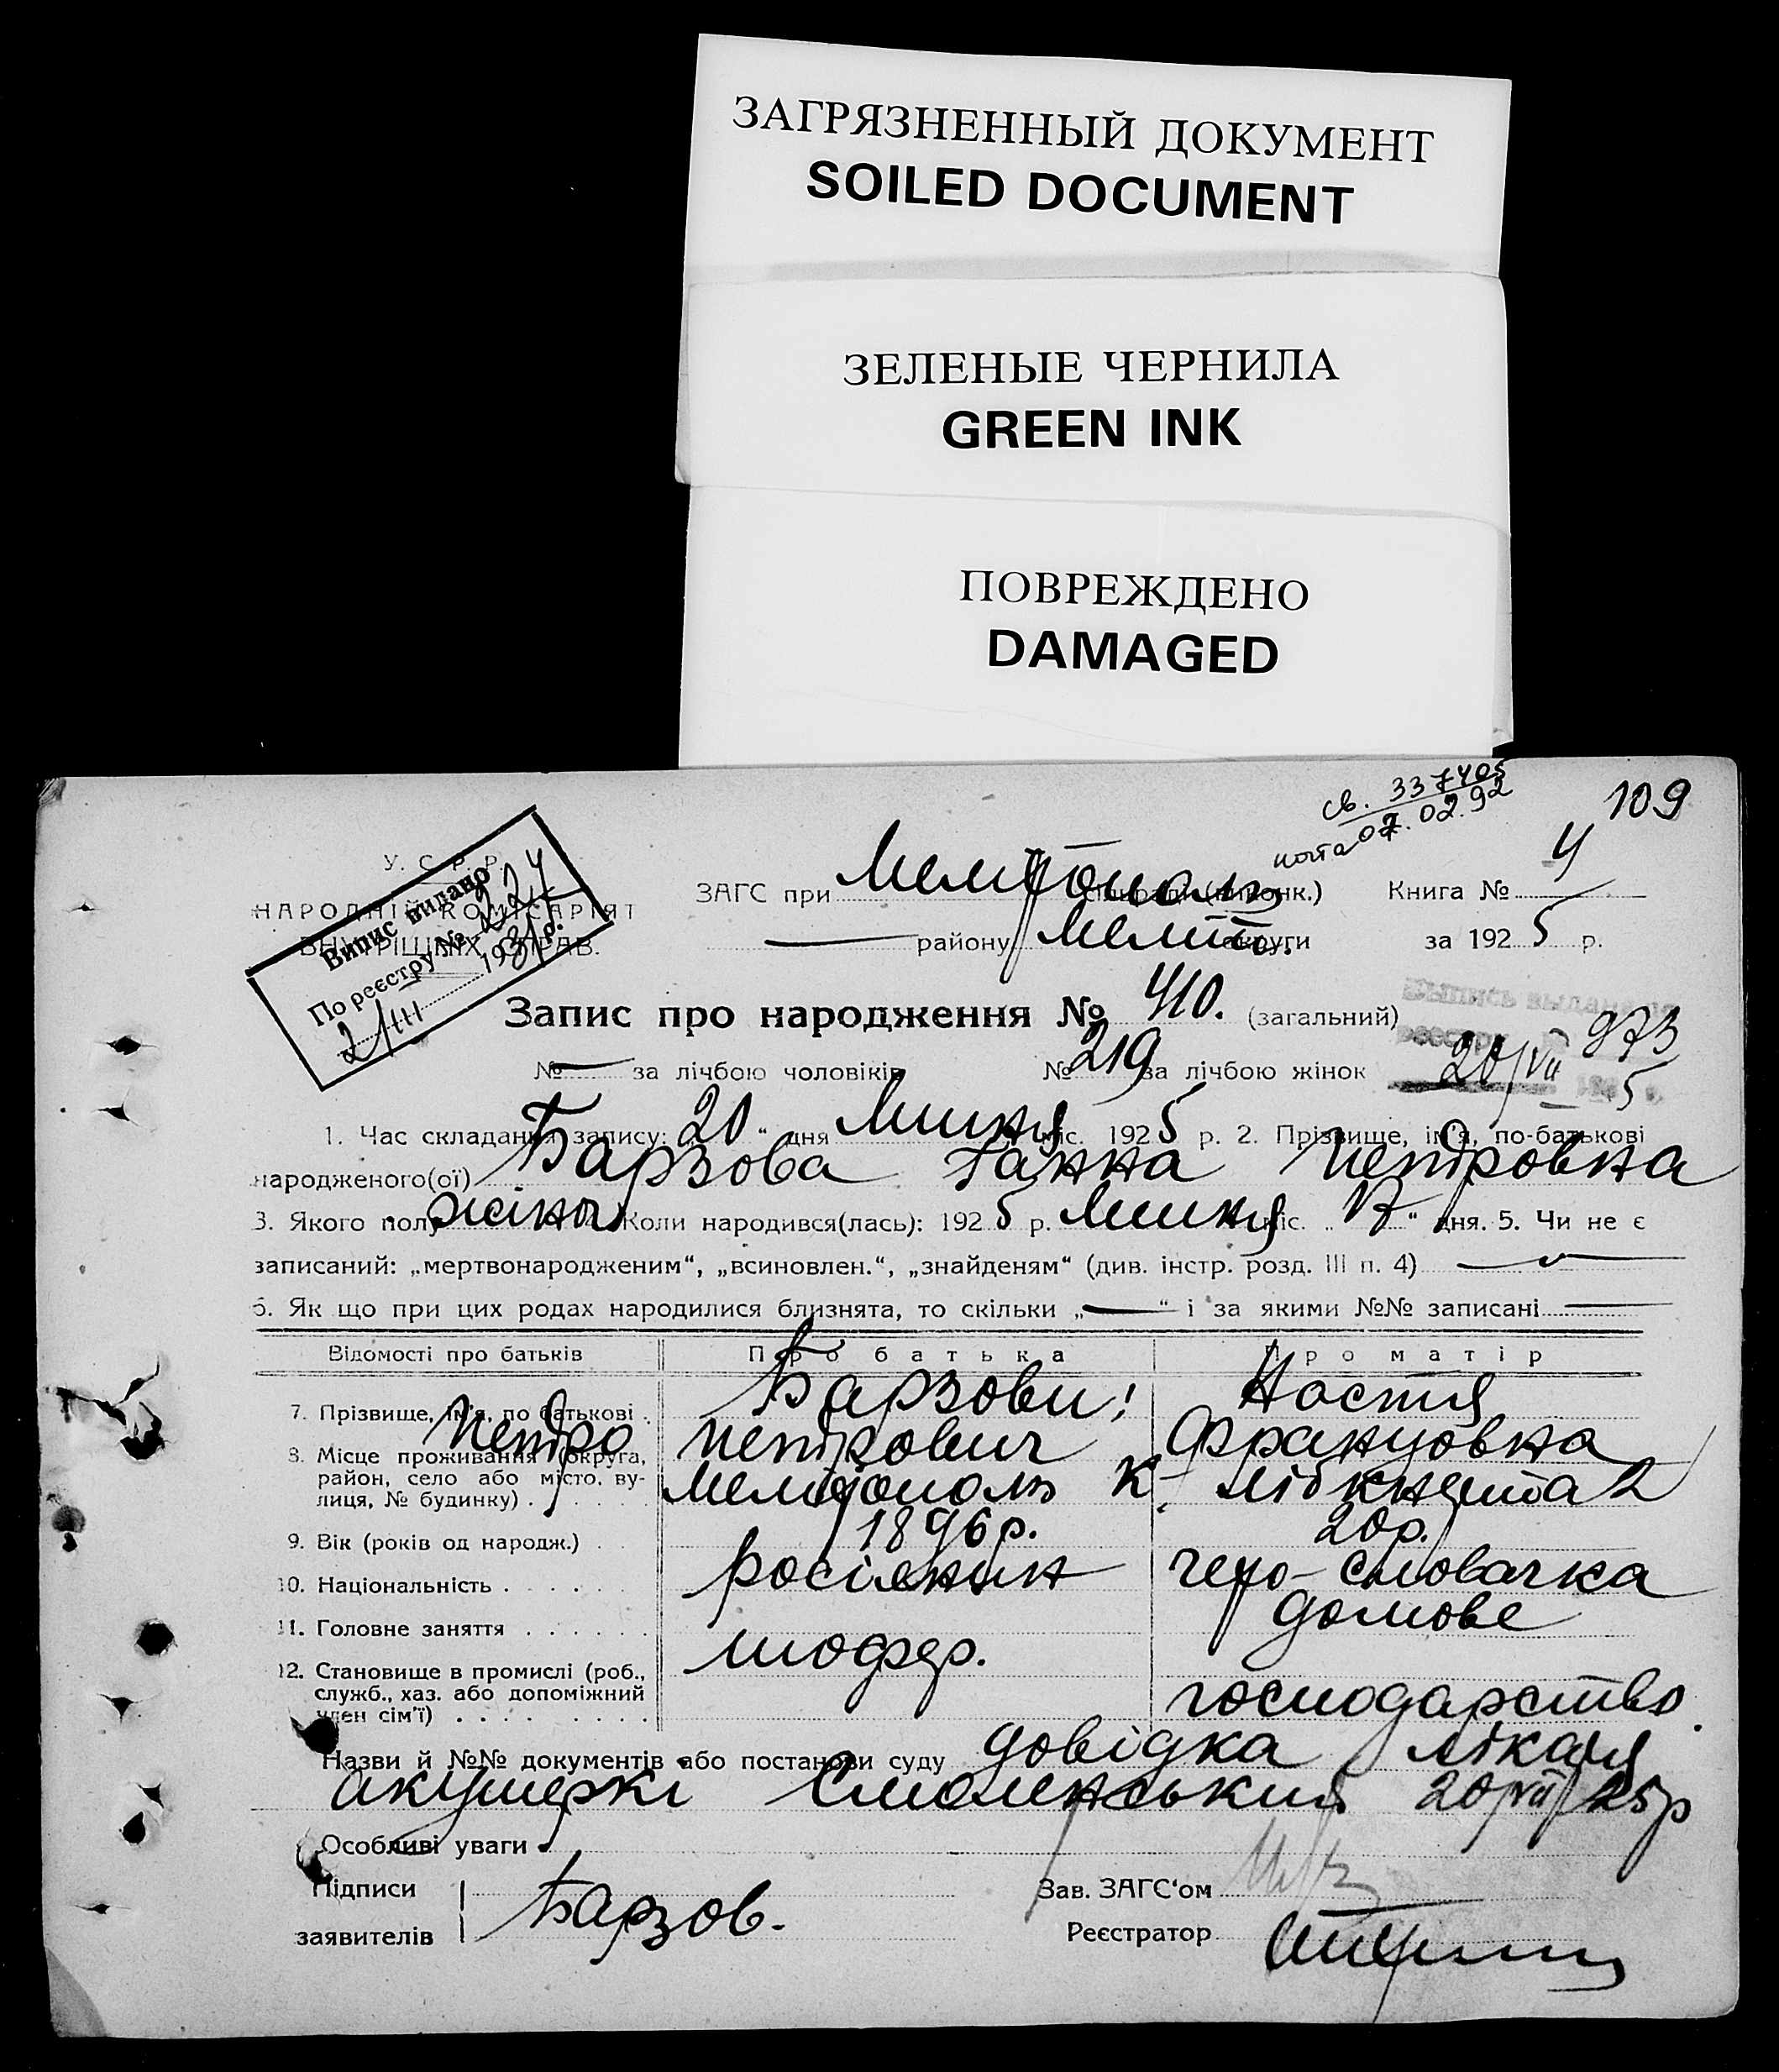 ЗАГРЯЗНЕННЫЙ ДОКУМЕНТ
SOILED DOCUMENT
ЗЕЛЕНЫЕ ЧЕРНИЛА
GREEN INK
ПОВРЕЖДЕНО
DAMAGED
св. 337405
07.02.92
109
У. С. Р. Р.
НАРОДНІЙ КОМІСАРІЯТ
ВНУТРІШНІХ СПРАВ.
Випис видано
По реєстру № 224
21/III 1931 р.
ЗАГС при Мелітополь (виконк.) Книга № 4
— району Меліт. округи за 1925 р.
Запис про народження № 410. (загальний)
Выпись выдана по
реестру 973
20/VII 5
№ — за лічбою чоловіків № 219 за лічбою жінок
1. Час складання запису: „20“ дня Липня міс. 1925 р. 2. Прізвище, ім'я, по-батькові
народженого(ої) Барзова Ганна Петровна
3. Якого полу жіноч. Коли народився(лась): 1925 р. Липня міс. „17“ дня. 5. Чи не є
записаний: „мертвонародженим“, „всиновлен.“, „знайденям“ (див. інстр. розд. III п. 4) —
6. Як що при цих родах народилися близнята, то скільки „—“ і за якими №№ записані —
Відомості про батьків Про батька Про матір
7. Прізвище, ім'я, по батькові . Барзови: Настя
Петро Петрович Францовна
8. Місце проживання (округа,
район, село або місто, ву-
лиця, № будинку) . Мелітополь К. Лібкнехта 2
9. Вік (років од народж.) . . 1896 р. 20 р.
10. Національність . . . . . . росіянин чехо-словачка
11. Головне заняття . . . . . . шофер. домове
12. Становище в промислі (роб.,
служб., хаз. або допоміжний
член сім'ї) . . . . . . . . господарство.
Назви й №№ документів або постанови суду довідка лікаря
акушеркі Смоленський 20/VII 25 р
Особливі уваги
Підписи
заявителів Барзов.
Зав. ЗАГС'ом
Реєстратор